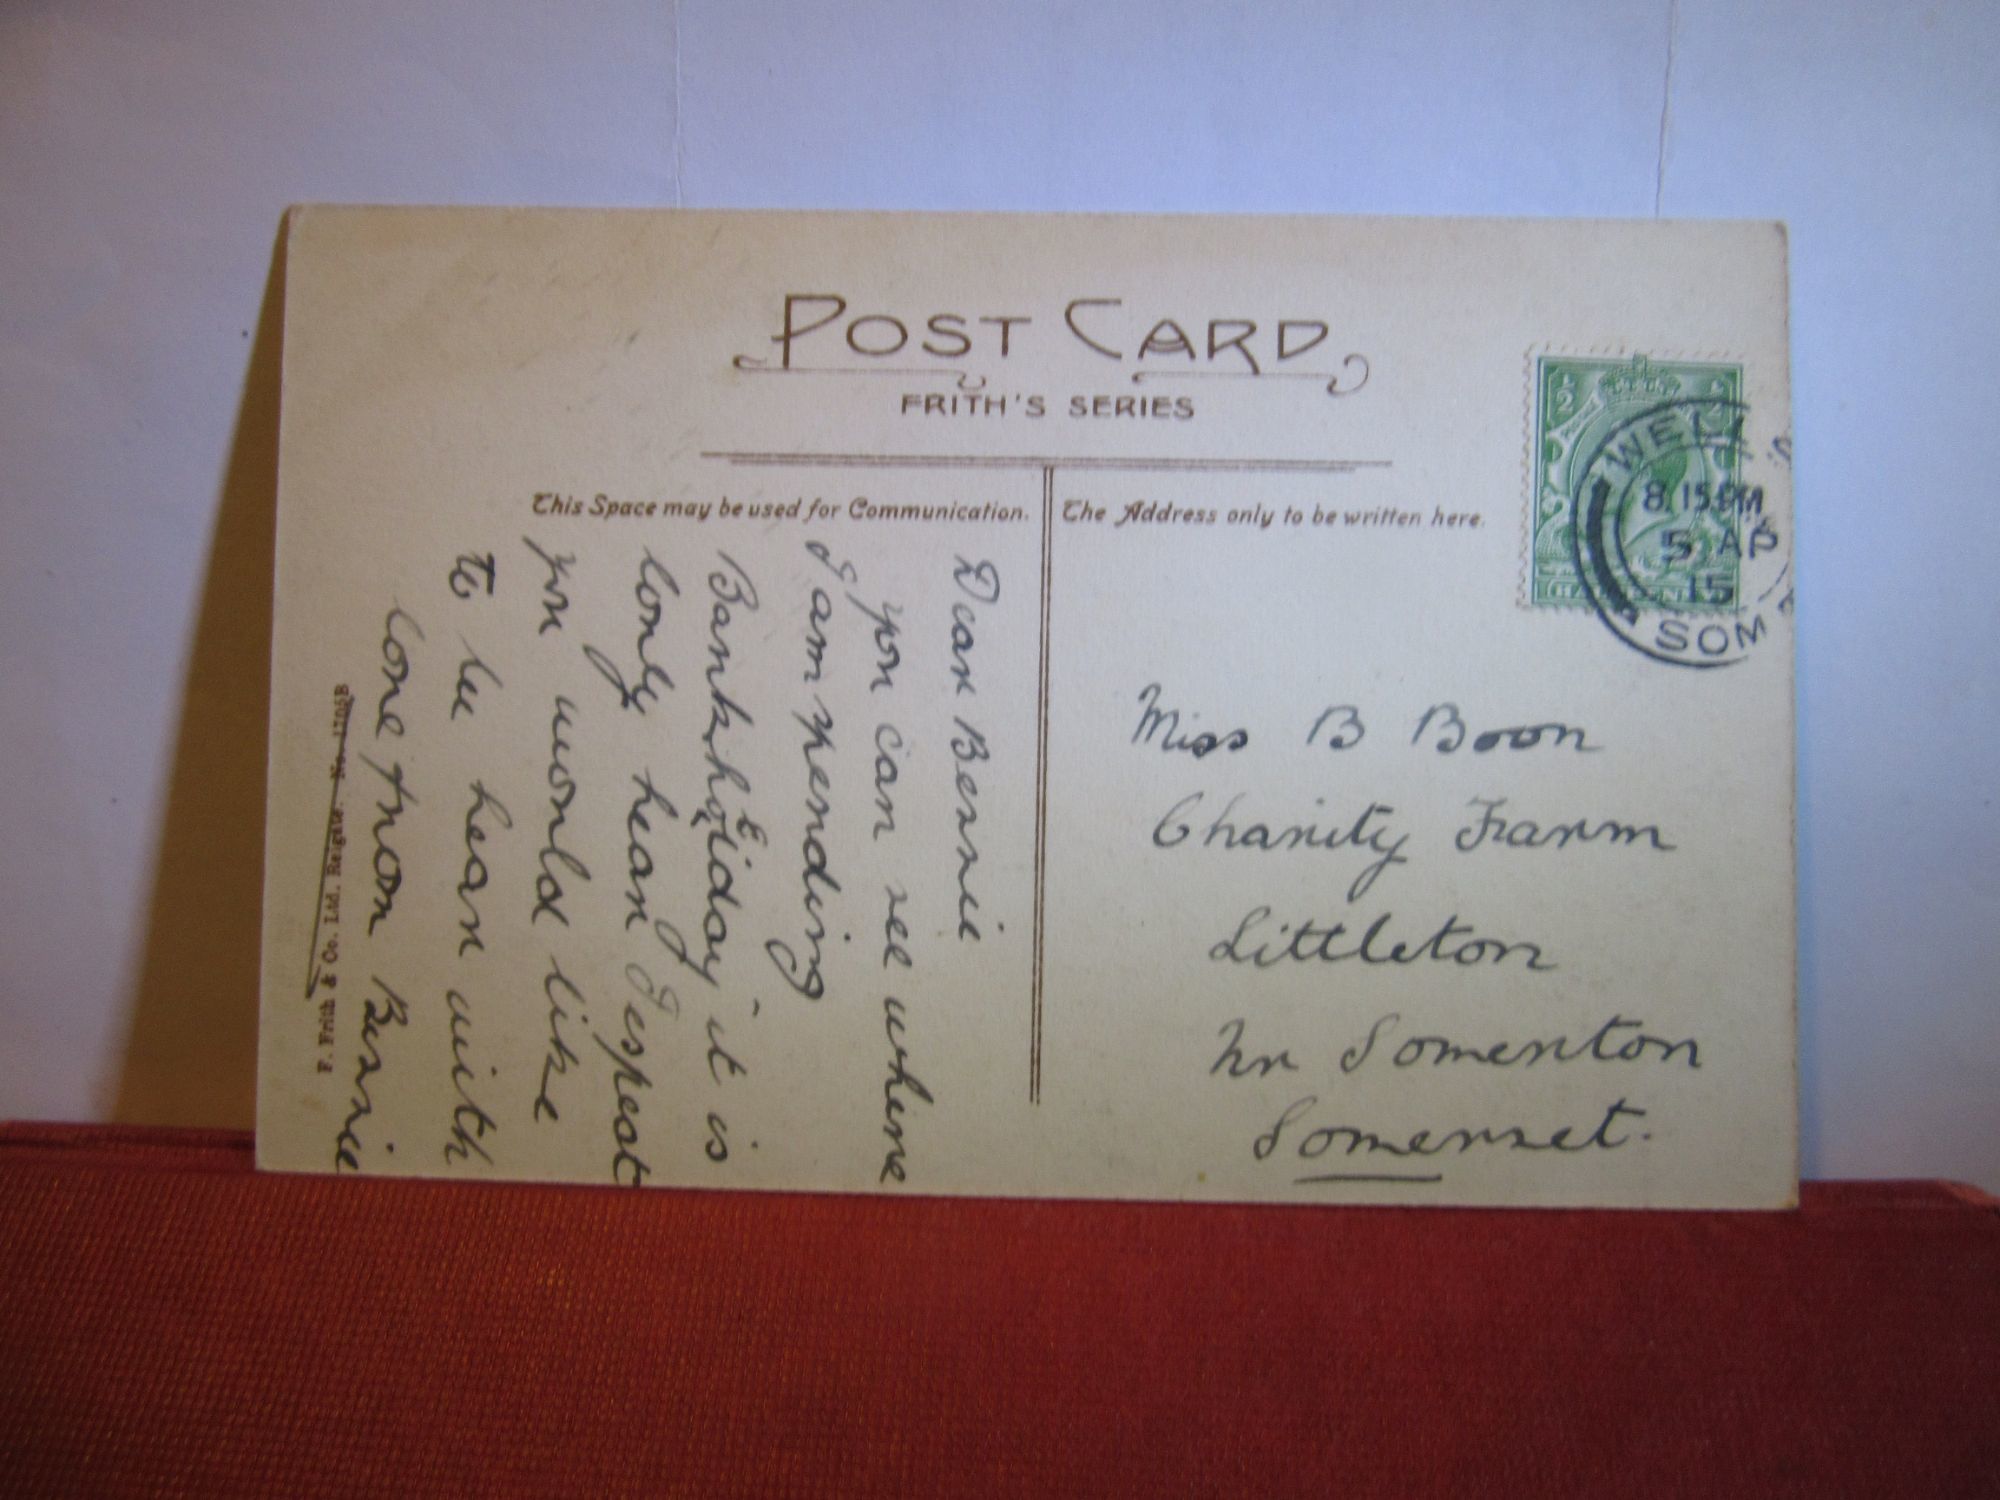 POST CARD
FRITH'S SERIES
This Space may be used for Communication.
The Address only to be written here.
Dear Bessie
you can see where
I am spending
Bank holiday it is
lonly hear I espeat
you would like
to be hear with
love from Bessie
F. Frith & Co. Ltd. Reigate. No. 1705B
½ ½
WELLS
8.15 PM
5 AP
15
SOM
Miss B Boon
Charity Farm
Littleton
Nr Somerton
Somerset.